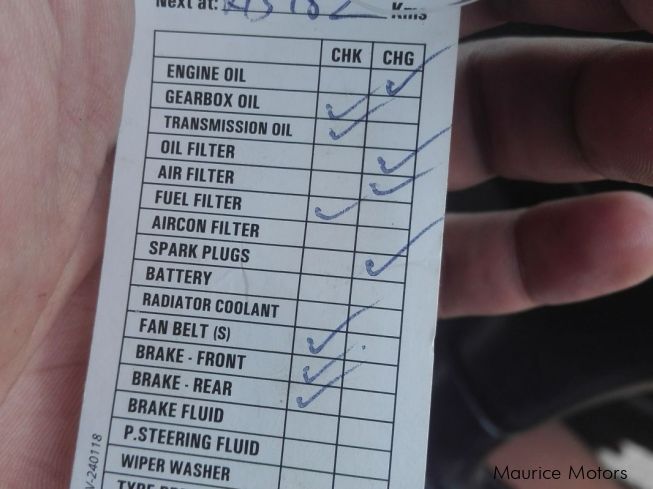 Next at: Kms
CHK CHG
ENGINE OIL ✓
GEARBOX OIL ✓
TRANSMISSION OIL ✓
OIL FILTER ✓
AIR FILTER ✓
FUEL FILTER ✓
AIRCON FILTER
SPARK PLUGS ✓
BATTERY
RADIATOR COOLANT
FAN BELT (S) ✓
BRAKE - FRONT ✓
BRAKE - REAR ✓
BRAKE FLUID
P.STEERING FLUID
WIPER WASHER
V-240118
Maurice Motors